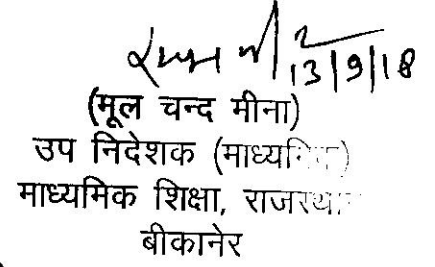 13/9/18
(मूल चन्द मीना)
उप निदेशक (माध्यमिक)
माध्यमिक शिक्षा, राजस्थान
बीकानेर